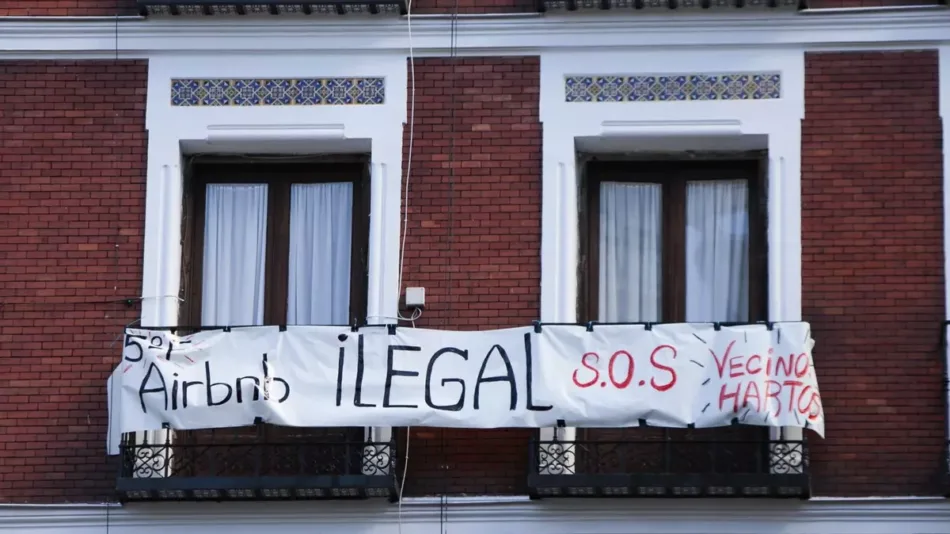 5º
Airbnb
iLEGAL
S.O.S
VECINO
HARTOS